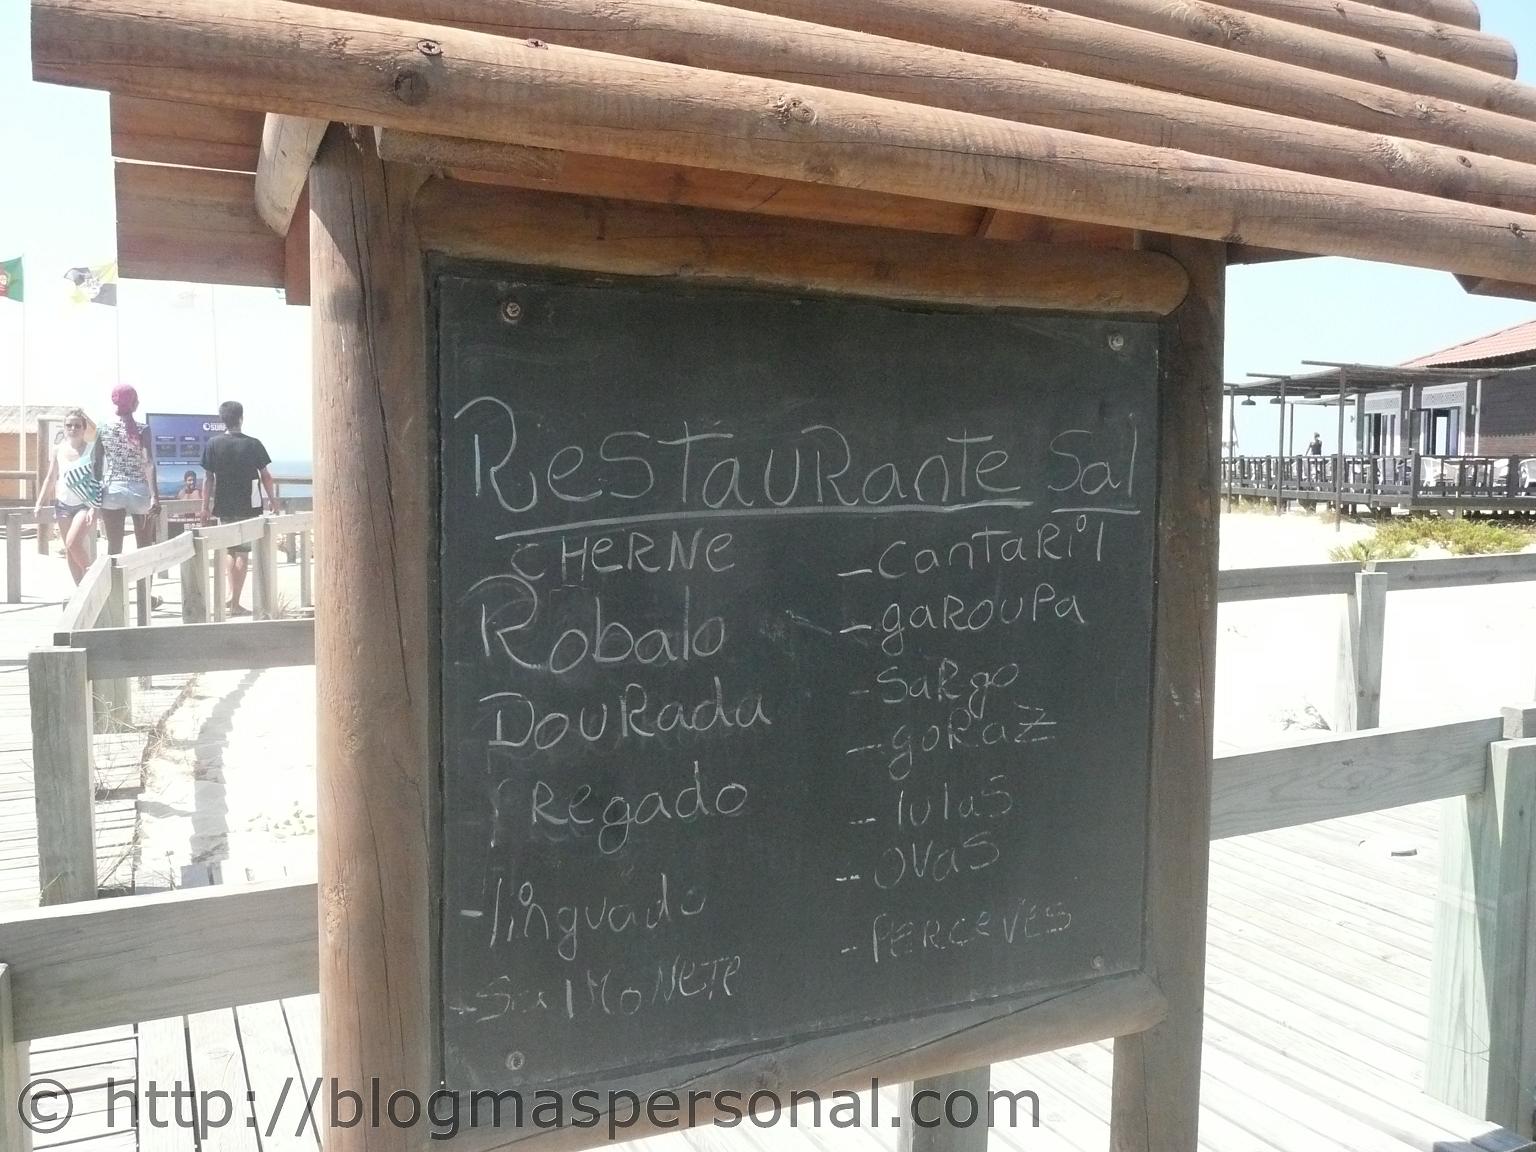 Restaurante Sal
CHERNE
Robalo
Dourada
Pregado
- linguado
- Salmonete
- Cantaril
- garoupa
- Sargo
- goraz
- lulas
- ovas
- PERCEVES
© http://blogmaspersonal.com